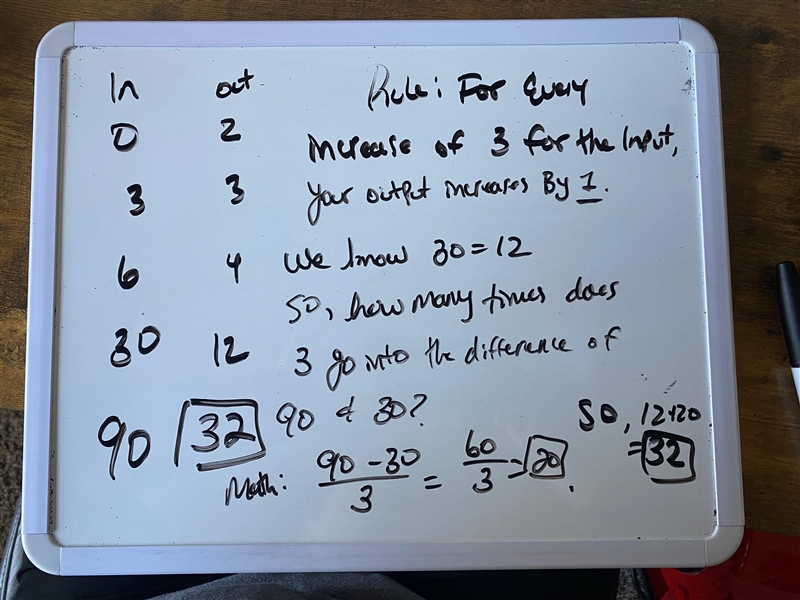 In out
0 2
3 3
6 4
30 12
90 32
Rule: For Every
Increase of 3 for the Input,
your output increases By 1.
We know 30 = 12
So, how many times does
3 go into the difference of
90 & 30?
Math: 90 - 30 / 3 = 60 / 3 = 20.
SO, 12+20
= 32